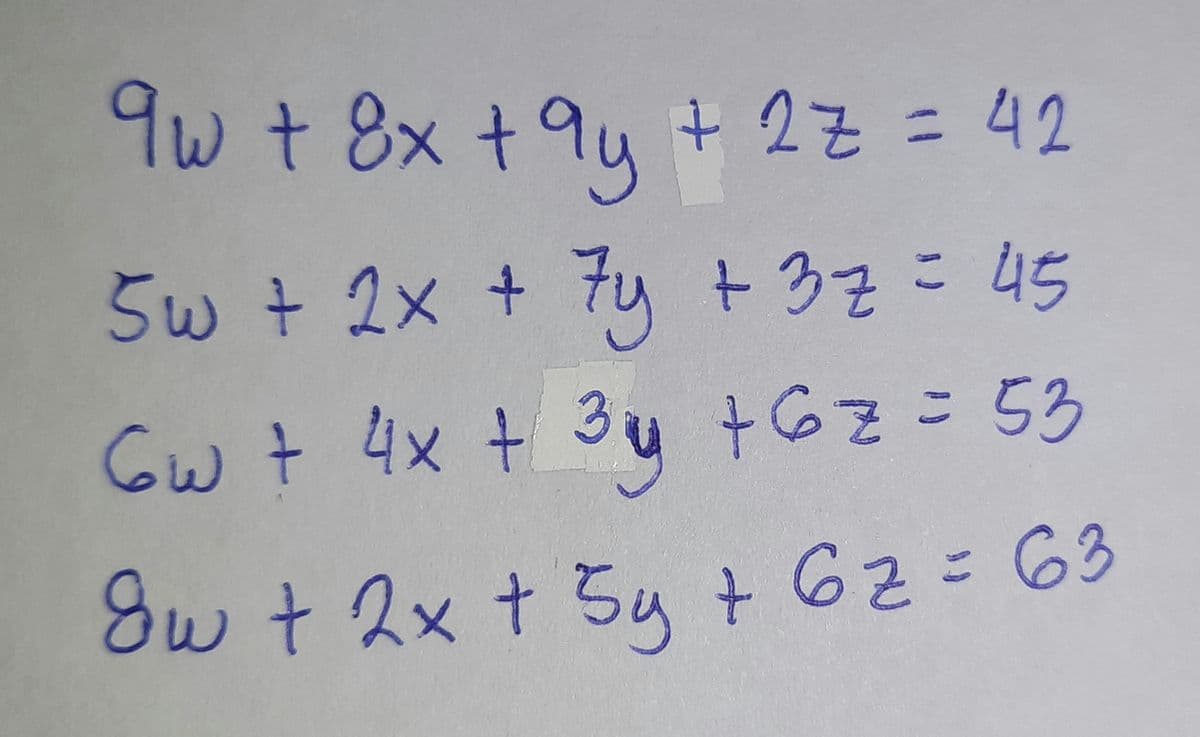 9w + 8x + 9y + 2z = 42
5w + 2x + 7y + 3z = 45
6w + 4x + 3y + 6z = 53
8w + 2x + 5y + 6z = 63